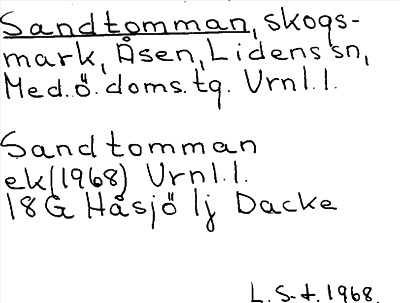 Sandtomman, skogs-
mark, Åsen, Lidens sn,
Med.ö.doms.tg. Vrnl.l.
Sandtomman
ek(1968) Vrnl.l.
18G Håsjö 1j Dacke
L.S-t.1968.